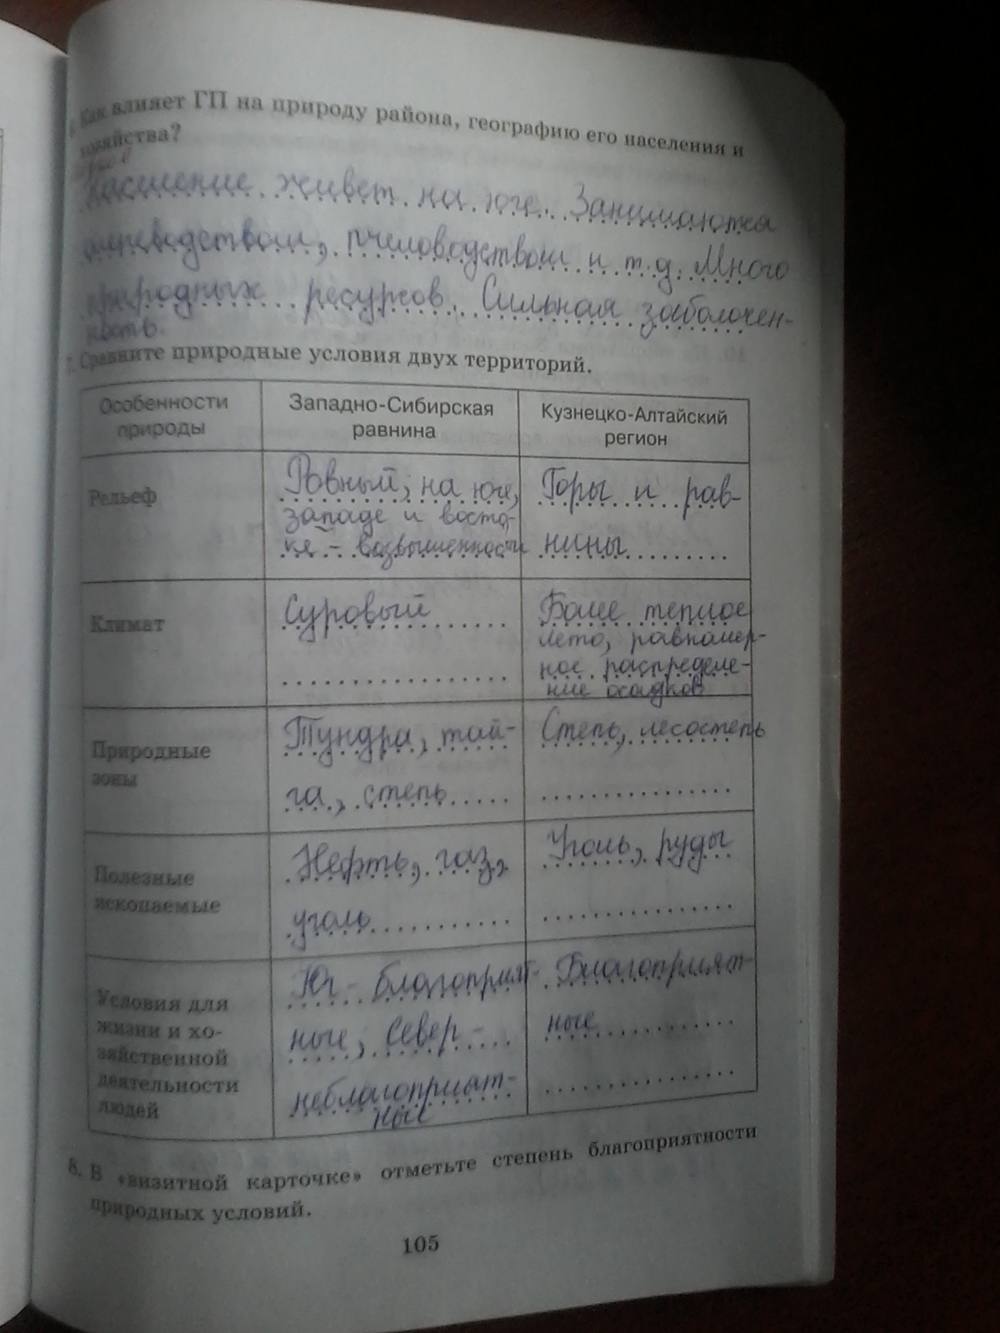 6. Как влияет ГП на природу района, географию его населения и
хозяйства?
Население живет на юге. Занимаются
пчеловодством и т.д. Много
природных ресурсов. Сильная заболочен-
ность.
7. Сравните природные условия двух территорий.
Особенности природы
Западно-Сибирская равнина
Кузнецко-Алтайский регион
Рельеф
Ровный, на юге,
западе и восто-
ке – возвышенности
Горы и рав-
нины
Климат
Суровый
Более теплое
лето, равномер-
ное распределе-
ние осадков
Природные
зоны
Тундра, тай-
га, степь
Степь, лесостепь
Полезные
ископаемые
Нефть, газ,
уголь
Уголь, руды
Условия для
жизни и хо-
зяйственной
деятельности
людей
Юг – благоприят-
ные, Север –
неблагоприят-
ные
Благоприят-
ные
8. В «визитной карточке» отметьте степень благоприятности
природных условий.
105